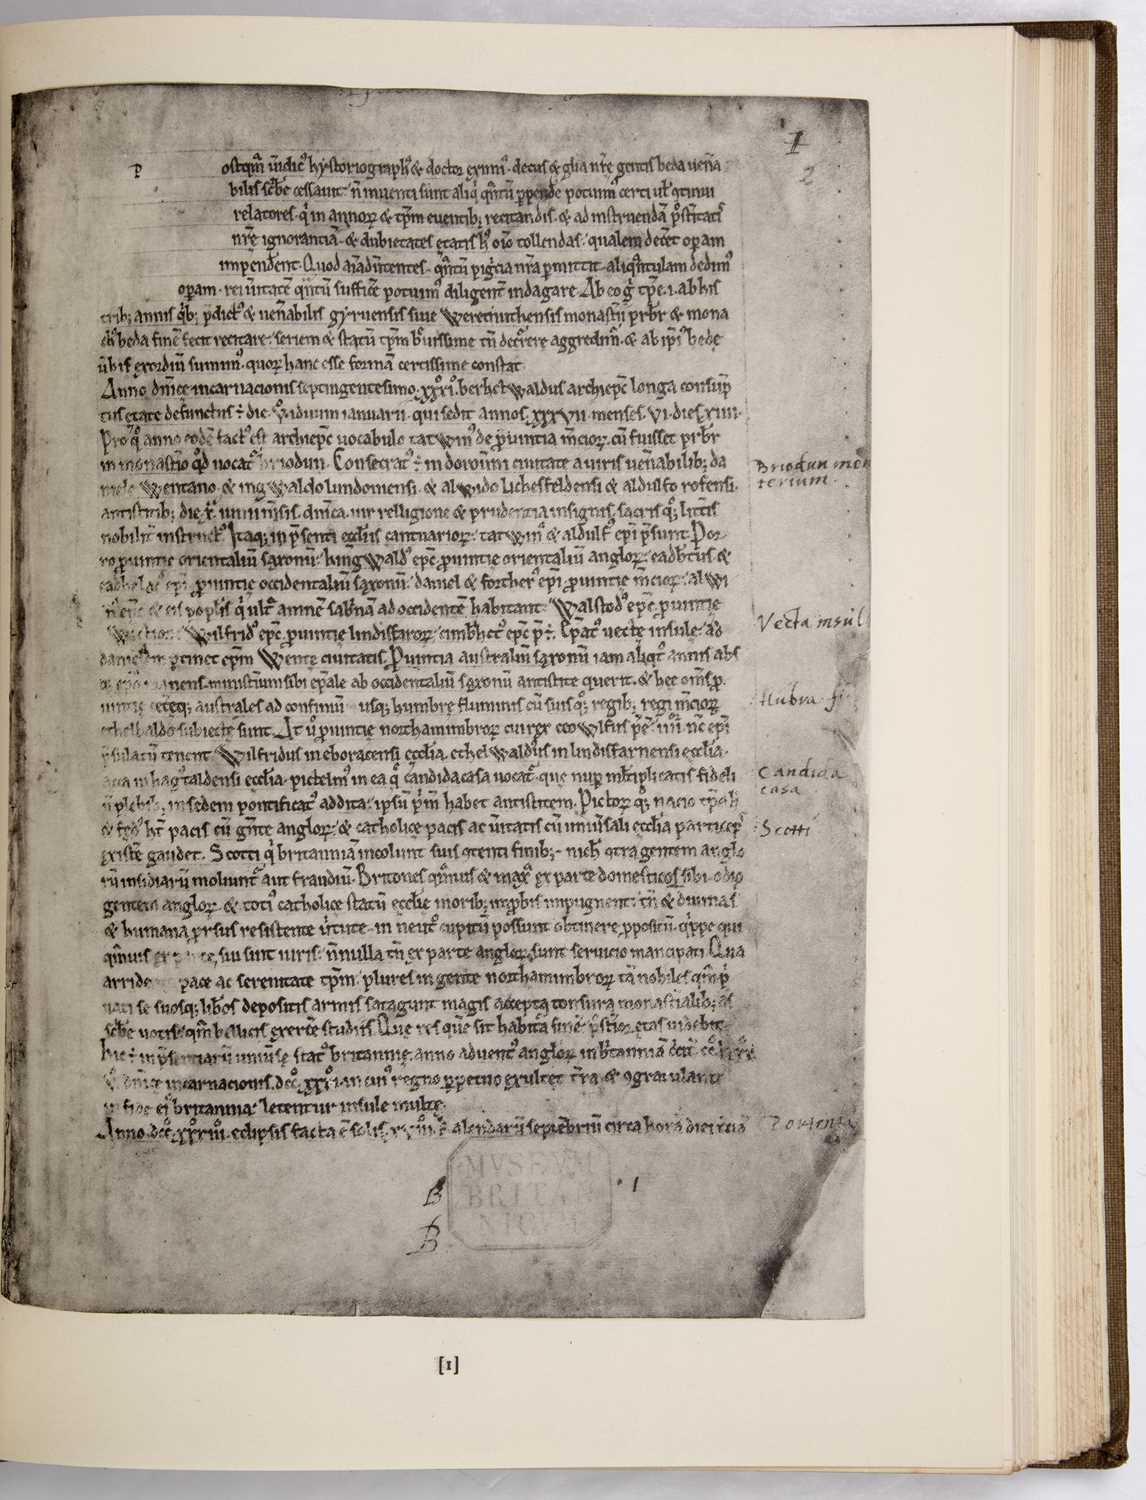 1
2
P ostq̄m ueridicꝰ hystoriographꝰ & doctor eximiꝰ decus & gl̄ia nr̄e gentis beda uen̄a
bilis sc̄be cessauit n̄ inuenti sunt aliq̇ q̄ntū p̱pende potuimꝰ certi ul̄ ꝯtinui
relatores q̇ in annoꝝ & tp̄m euentib; recitandis & ad instruendā posītatis
nr̄e ignorantiā & dubietates etatis hꝰ om̄o tollendas qualem decet operam
impenderent. Quod aīaduertentes q̄ntū pigricia nr̄a permittit aliq̄ntulam dedimꝰ
operam rei ueritatē q̄ntū sufficē potuimꝰ diligent̄ indagare. Ab eo g̊ tp̄e .i. ab his
trib; annis q̇b; p̄dictꝰ & uen̄abilis gyruensis siue Weremuthensis monastīi prb̄r & mona
chꝰ beda finē fecit recitare seriem & statū tp̄m breuissime tn̄ decrēre aggredim̄ & ab ipīꝰ bede
ūbis exordiū sumimꝰ quoꝝ hanc esse formā certissime constat
Anno dn̄ice incarnacionis septingentesimo .xxx̊i. berhetwaldus archiep̄c longa consūp
tus etate defunctus ē die .v. iduum ianuarii qui sedit annos .xxxvii. menses .vi. dies .xiiii.
Pro q̊ anno eodē factꝰ est archiep̄c uocabulo tatwinꝰ de prouintia m̄cioꝝ cū fuisset prb̄r
in monast̄io qd̄ uocatꝰ briodun. Consecratꝰ ē in dorouerni ciuitate a uiris uen̄abilib; da
niele Wentano & ingwaldo lundoniensi & alwido lichesfeldensi & aldulfo rofensi
antistitib; die .x. iunii m̄sis dn̄ica uir relligione & prudentia insignis sacris q̊q; litt̄is
nobilit̄ instructꝰ. Itaq; in p̄senti eccl̄iis cantuarioꝝ tatwinꝰ & aldulfꝰ ep̄i p̄sunt. Por
ro prouintie orientaliū saxonū ingwaldꝰ ep̄c prouintie orientaliū angloꝝ eadb̄tus &
eadhelacꝰ ep̄i prouintie occidentaliū saxonū daniel & fortherꝰ ep̄i prouintie m̄cioꝝ alwi
nꝰ ep̄c & eis popl̄is q̇ ultra amnē sab̄nā ad occidentē habitant Walstodꝰ ep̄c prouintie
Wictioꝝ Wilfridꝰ ep̄c prouintie lindisfaroꝝ cinib̄hctꝰ ep̄c p̄ē. Ep̄atꝰ uecte insule ad
daniel̄m ꝑtinet ep̄m Wente ciuitatis. Prouintia australiū saxonū iam aliqͦt annis abs
q; ep̄o manens minist̄ium sibi ep̄ale ab occidentaliū saxonū antistite querit & hee om̄s pro
uintie cēteq; australes ad confiniū usq; humbre fluminis cū suis q̊q; regib; regi m̄cioꝝ
ethelbaldo subiecte sunt. At ūo prouintie northanimbroꝝ cui rex ceowlfus p̄ē .iiii. nc̄ ep̄i
p̄sulatū tenent Wilfridus in eboracensi eccl̄ia ethelwaldus in lindisfarnensi eccl̄ia
acca in hagꝰtaldensi eccl̄ia pictelmꝰ in ea q̄ candida casa uocatꝰ que nup̱ multiplicatis fideli
ū plebib; in sedem pontificatꝰ addita ipsū p̄mū habet antistitem. Pictoꝝ q̊q; nacio tp̄e h
& fedꝰ hꝫ pacis cū gente angloꝝ & catholice pacis ac ūitatis cū uniūsali eccl̄ia particeps̄
existē gaudet. Scotti q̇ britanniā incolunt suis ꝯtenti finib; nich̄ ꝯtra gentem anglo
rū insidiarū moliuntꝰ aut fraudiū. Britones q̄muis & maxꝰ ex parte domestico sibi odio
gentem angloꝝ & totiꝰ catholice statū eccl̄ie morib; inp̱bis impugnent tn̄ & diuina s
& humana p̱rsus resistente ūtute in neutꝰ cupitū possunt obtinere p̱positū q̇ppe qui
q̄muis ex parte sui sint iuris n̄nulla tn̄ ex parte angloꝝ sunt seruicio mancipati. Qua
arride pace ac serenitate tp̄m plures in gente northanimbroꝝ tā nobiles q̄m ṗ
uati se suosq; lib̄os depositis armis satagunt magis accepta tonsura monastialib; as
sc̄be uotis q̄m bellicis exercē studiis. Que res quē sit habitā finē p̄stioꝝ etas uidebit
hic ē inp̄sentiarū uniūse statꝰ britannie anno aduentꝰ angloꝝ in britanniā
dn̄ice incarnacionis .dcc̊.xxx̊i. in cuiꝰ regno p̱petuo exultet tr̄a & ꝯgratulante
in fide eiꝰ britannia letentur insule multe
Anno .dcc̊.xxx̊iii. eclipsis facta ē solis .xviiii. kalendarū septēbriū circa horā diei tciā
Briodun mon
terium
Vecta insul
Hubra fl
Candida
casa
Scotti
Portent
B · 1
B
MVSEVM
BRITAN
NICVM
[1]